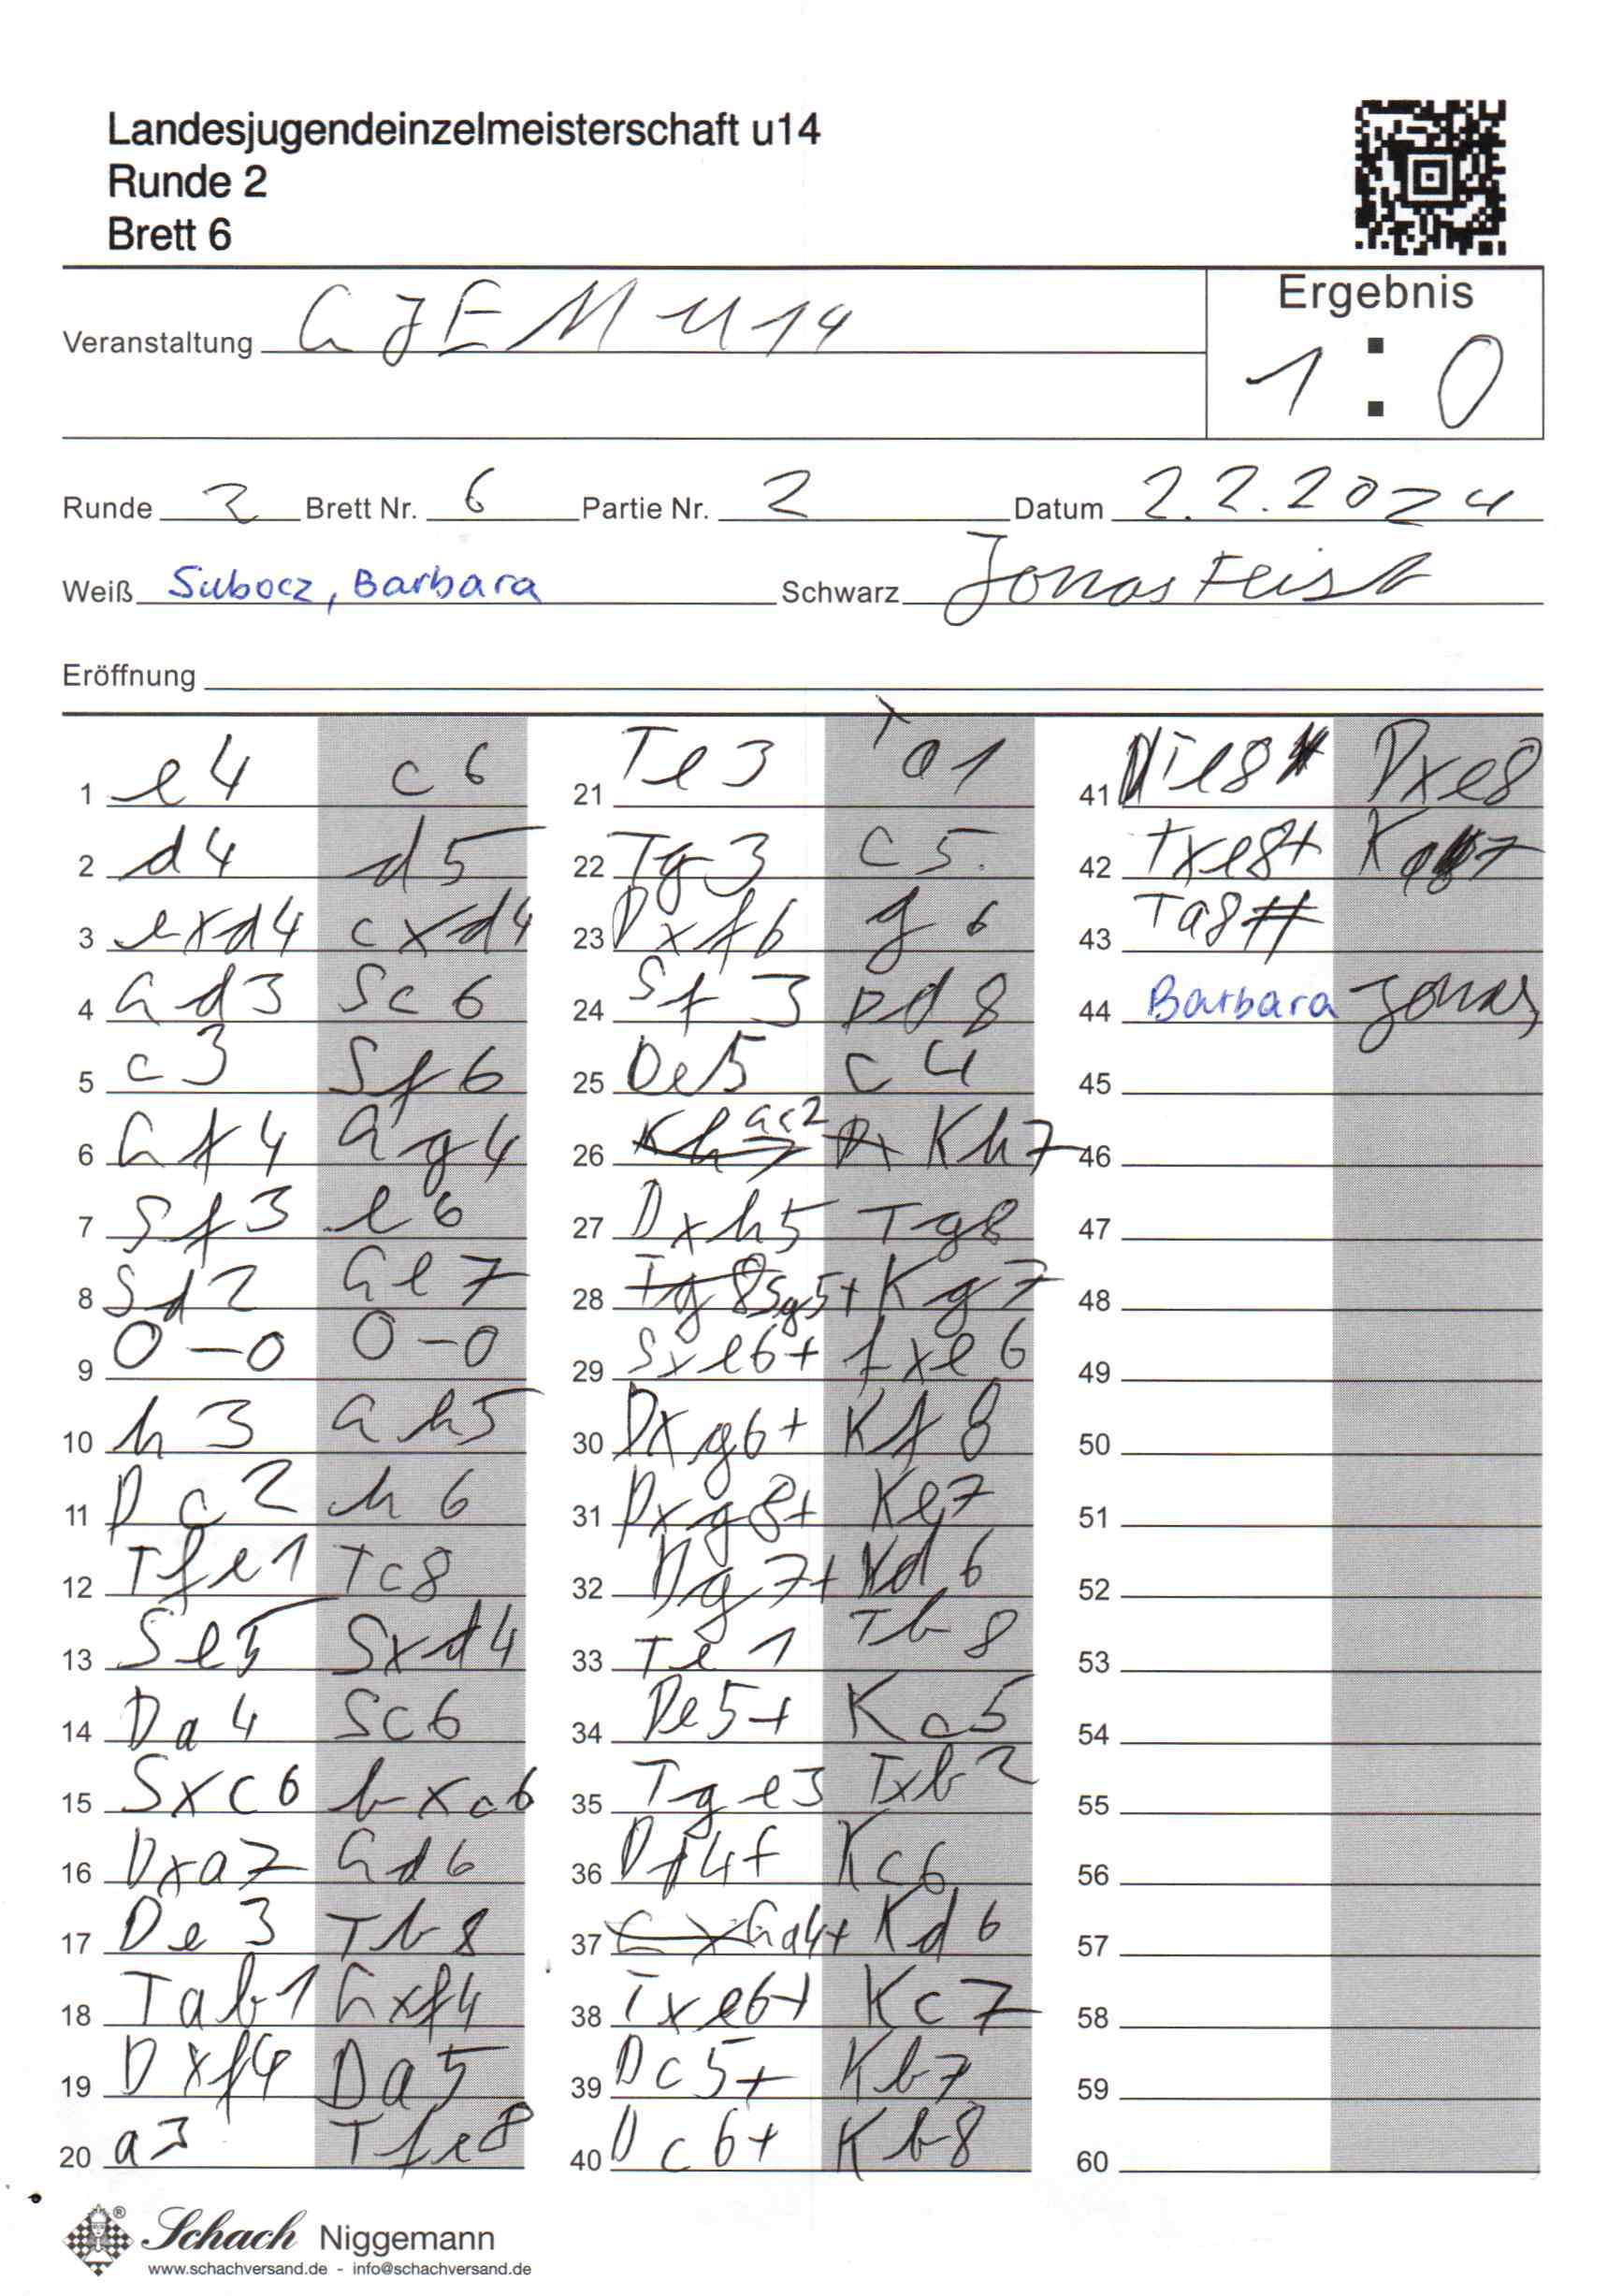 Landesjugendeinzelmeisterschaft u14
Runde 2
Brett 6
Veranstaltung LJEM U14
Ergebnis
1 : 0
Runde 2 Brett Nr. 6 Partie Nr. 2 Datum 2.2.2024
Weiß Subocz, Barbara Schwarz Jonas Feist
Eröffnung
1 e4 c6
2 d4 d5
3 exd4 cxd4
4 Ld3 Sc6
5 c3 Sf6
6 Lf4 Lg4
7 Sf3 e6
8 Sd2 Le7
9 0-0 0-0
10 h3 Lh5
11 Dc2 h6
12 Tfe1 Tc8
13 Se5 Sxd4
14 Da4 Sc6
15 Sxc6 bxc6
16 Dxa7 Ld6
17 De3 Tb8
18 Tab1 Lxf4
19 Dxf4 Da5
20 a3 Tfe8
21 Te3 Ta1
22 Tg3 c5
23 Dxf6 g6
24 Sf3 Dd8
25 De5 c4
26 Lc2 Kh7
27 Dxh5 Tg8
28 Sg5+ Kg7
29 Sxe6+ fxe6
30 Dxg6+ Kf8
31 Dxg8+ Ke7
32 Dg7+ Kd6
33 Te1 Tb8
34 De5+ Kc5
35 Tge3 Txb2
36 Df4+ Kc6
37 La4+ Kd6
38 Txe6+ Kc7
39 Dc5+ Kb7
40 Dc6+ Kb8
41 Te8 Dxe8
42 Txe8+ Ka7
43 Ta8#
44 Barbara Jonas
45
46
47
48
49
50
51
52
53
54
55
56
57
58
59
60
Schach Niggemann
www.schachversand.de - info@schachversand.de